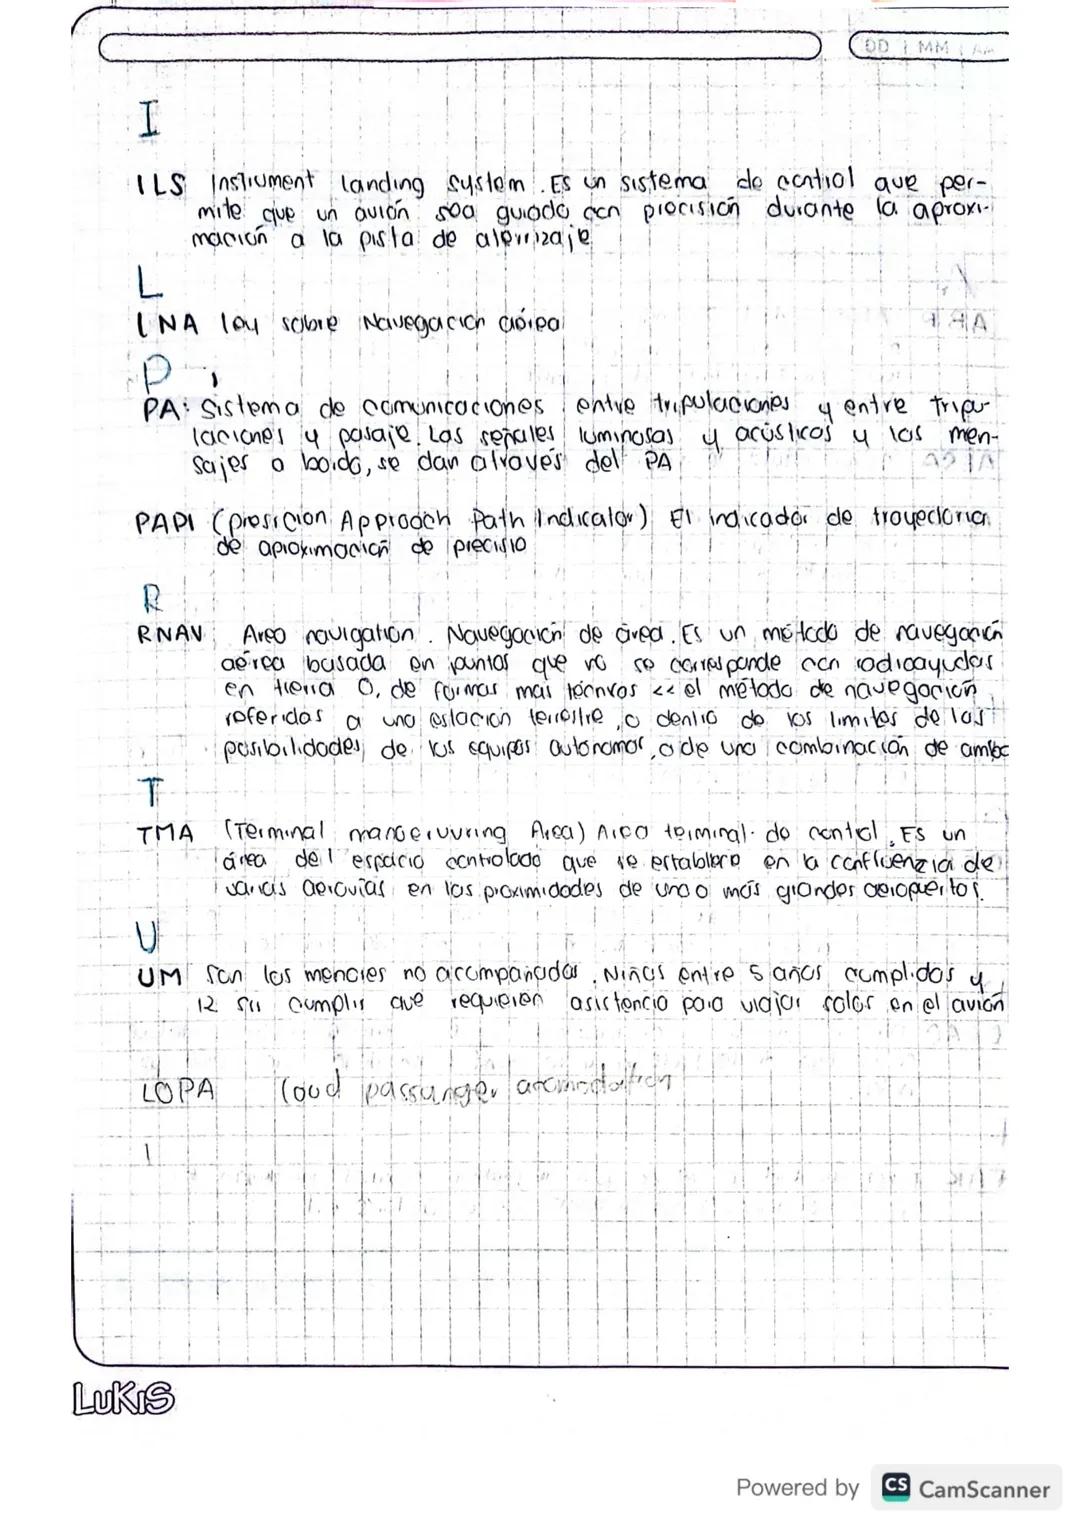 DD MM
I
ILS Instrument landing system. Es un sistema de control que per-
mite que un avión sea guiado con precisión durante la aproxi-
mación a la pista de aterrizaje
L
LNA ley sobre Navegación aérea
P
PA: Sistema de comunicaciones entre tripulaciones y entre tripu-
laciones y pasaje. Las señales luminosas y acústicos y los men-
sajes a bordo, se dan através del PA
PAPI (presicion Approach Path Indicator) El indicador de trayectoria
de aproximación de precisio
R
RNAV Area navigation. Navegación de área. Es un método de navegación
aérea basada en puntos que no se corresponde con radioayudas
en tierra O, de formas mas técnicos << el método de navegación
referidas a una estación terrestre, o dentro de los limites de las
posibilidades de los equipos autónomos, o de una combinación de ambos
T
TMA (Terminal manoeruvring Area) Area terminal de control. Es un
área del espacio controlado que se establece en la confluenzia de
varias aerovías en las proximidades de una o más grandes aeropuertos.
U
UM Son los menores no acompañados. Niños entre 5 años cumplidos y
12 sin cumplir que requieren asistencia para viajar solos en el avión
LOPA passanger acomodation
LUKIS
Powered by CS CamScanner